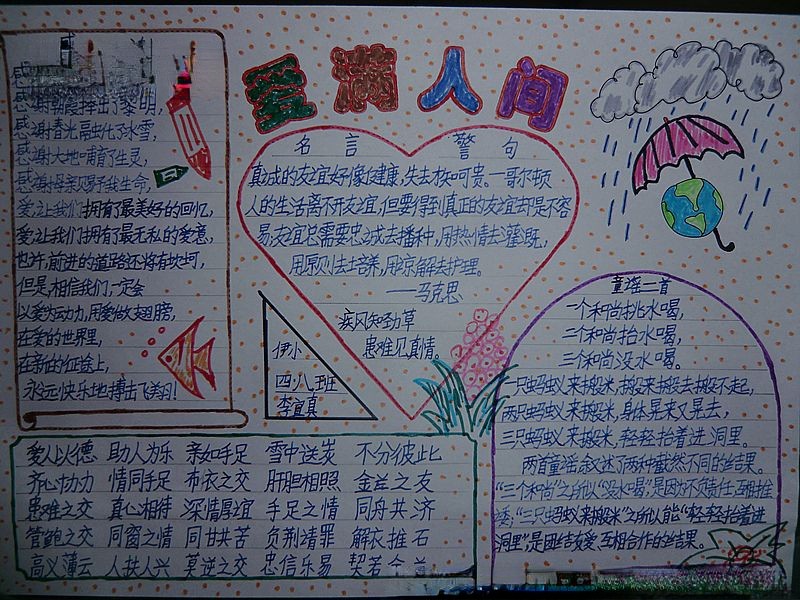 爱满人间
感谢朝霞捧出了黎明,
感谢春光融化了冰雪,
感谢大地哺育了生灵,
感谢母亲赐予我生命,
爱,让我们拥有了最美好的回忆,
爱,让我们拥有了最无私的爱意,
也许,前进的道路还将有坎坷,
但是,相信我们,一定会
以爱为动力,用爱做翅膀,
在爱的世界里,
在新的征途上,
永远快乐地搏击飞翔!
名言警句
真诚的友谊好像健康,失去才知可贵。一哥尔顿
人的生活离不开友谊,但要得到真正的友谊却是不容
易,友谊总需要忠诚去播种,用热情去灌溉,
用原则去培养,用谅解去护理。
——马克思
疾风知劲草
患难见真情。
伊小
四、八班
李宜真
童谣二首
一个和尚挑水喝,
二个和尚抬水喝,
三个和尚没水喝。
一只蚂蚁来搬米,搬来搬去搬不起,
两只蚂蚁来搬米,身体晃来又晃去,
三只蚂蚁来搬米,轻轻抬着进洞里。
两首童谣叙述了两种截然不同的结果。
“三个和尚”之所以“没水喝”,是因为不负责任、互相推
诿;“三只蚂蚁来搬米”之所以能“轻轻抬着进
洞里”,是团结友爱、互相合作的结果。
爱人以德 助人为乐 亲如手足 雪中送炭 不分彼此
齐心协力 情同手足 布衣之交 肝胆相照 金兰之友
患难之交 真心相待 深情厚谊 手足之情 同舟共济
管鲍之交 同窗之情 同甘共苦 负荆请罪 解衣推石
高义薄云 人扶人兴 莫逆之交 忠信乐易 契若金兰